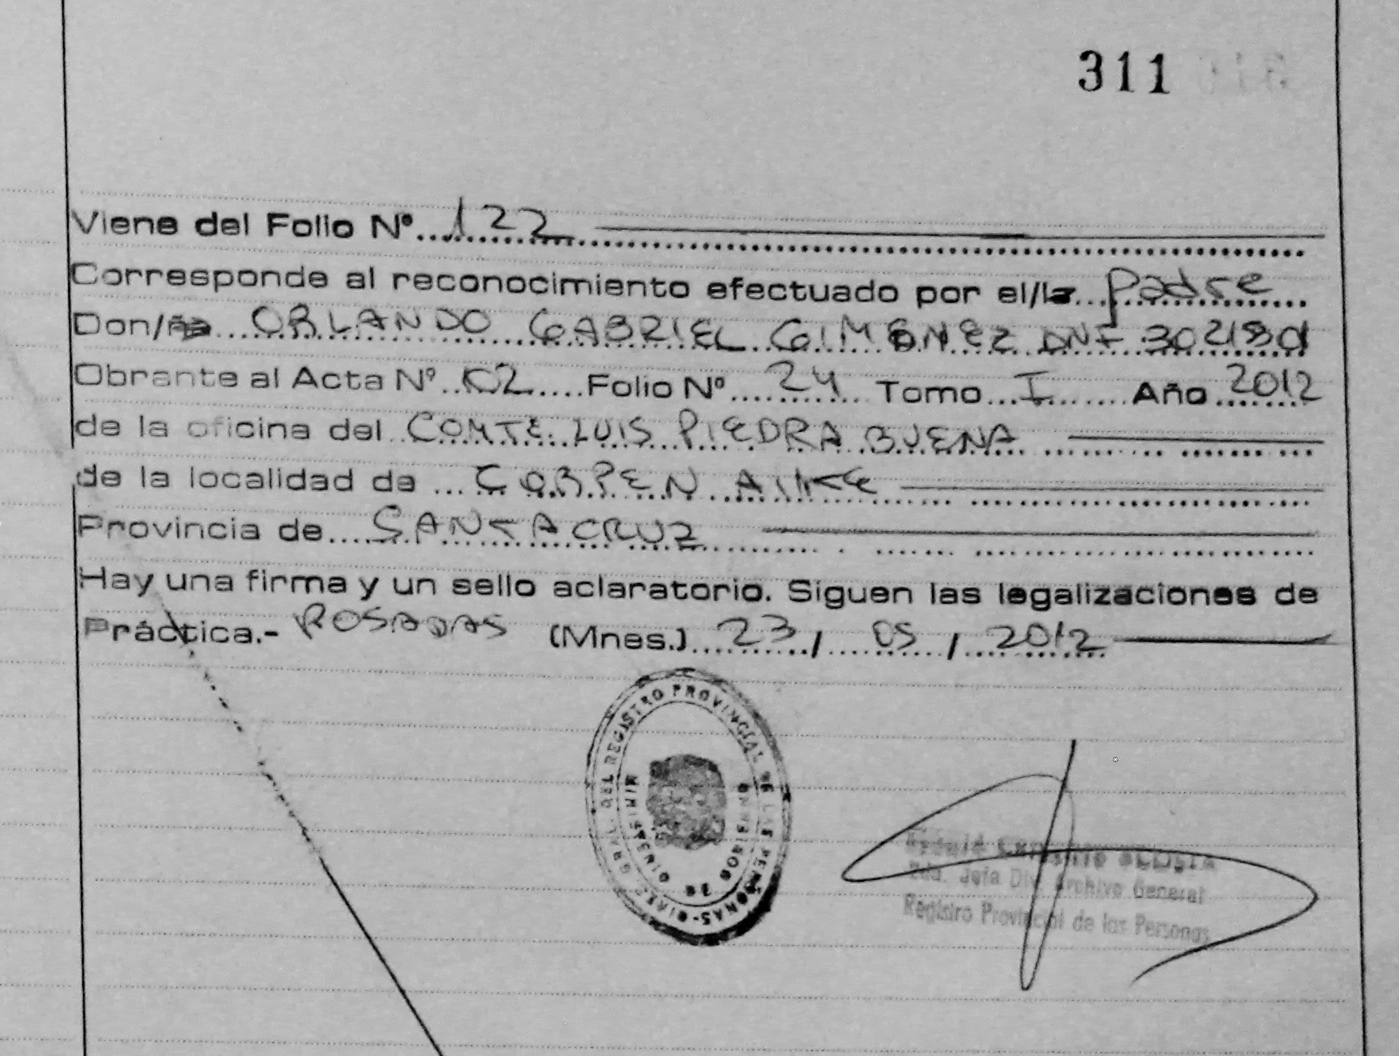 311
Viene del Folio Nº 122
Corresponde al reconocimiento efectuado por el/la padre
Don/ña ORLANDO GABRIEL GIMENEZ
Obrante al Acta Nº 02 Folio Nº 24 Tomo I Año 2012
de la oficina del COMTE LUIS PIEDRA BUENA
de la localidad de CORPEN AIKE
Provincia de SANTA CRUZ
Hay una firma y un sello aclaratorio. Siguen las legalizaciones de
Práctica.- POSADAS (Mnes.) 23/ 05 / 2012
DEL REGISTRO PROVINCIAL DE LAS PERSONAS
MINISTERIO DE GOBIERNO
Jefa Div. Archivo General
Registro Provincial de las Personas